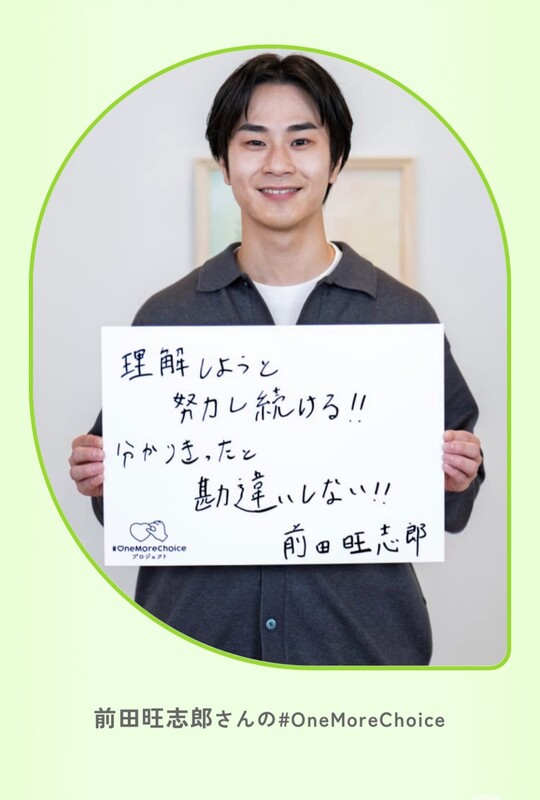 理解しようと
努力し続ける!!
分かりきったと
勘違いしない!!
前田旺志郎
#OneMoreChoice
プロジェクト
前田旺志郎さんの#OneMoreChoice